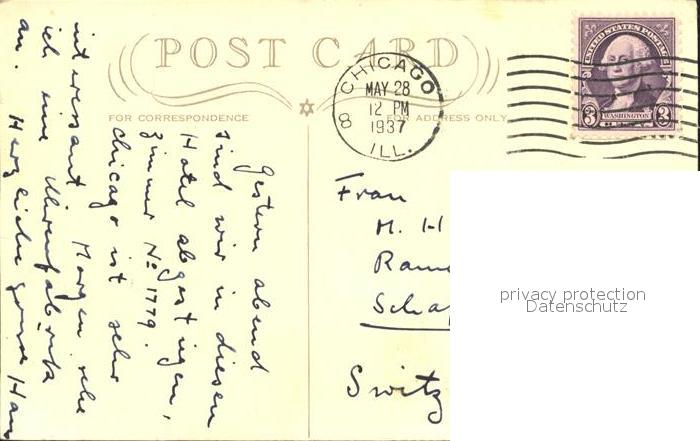 POST CARD
FOR CORRESPONDENCE
FOR ADDRESS ONLY
CHICAGO
8
MAY 28
12 PM
1937
ILL.
UNITED STATES POSTAGE
3 WASHINGTON 3
Gestern abend
sind wir in diesen
Hotel abgestiegen,
Zimmer No 1779.
Chicago ist sehr
interessant. Morgen sehe
ich eine Uhrenfabrik
an. Herzliche Hans
Frau
M. H
Ram
Scha
Switz
privacy protection
Datenschutz